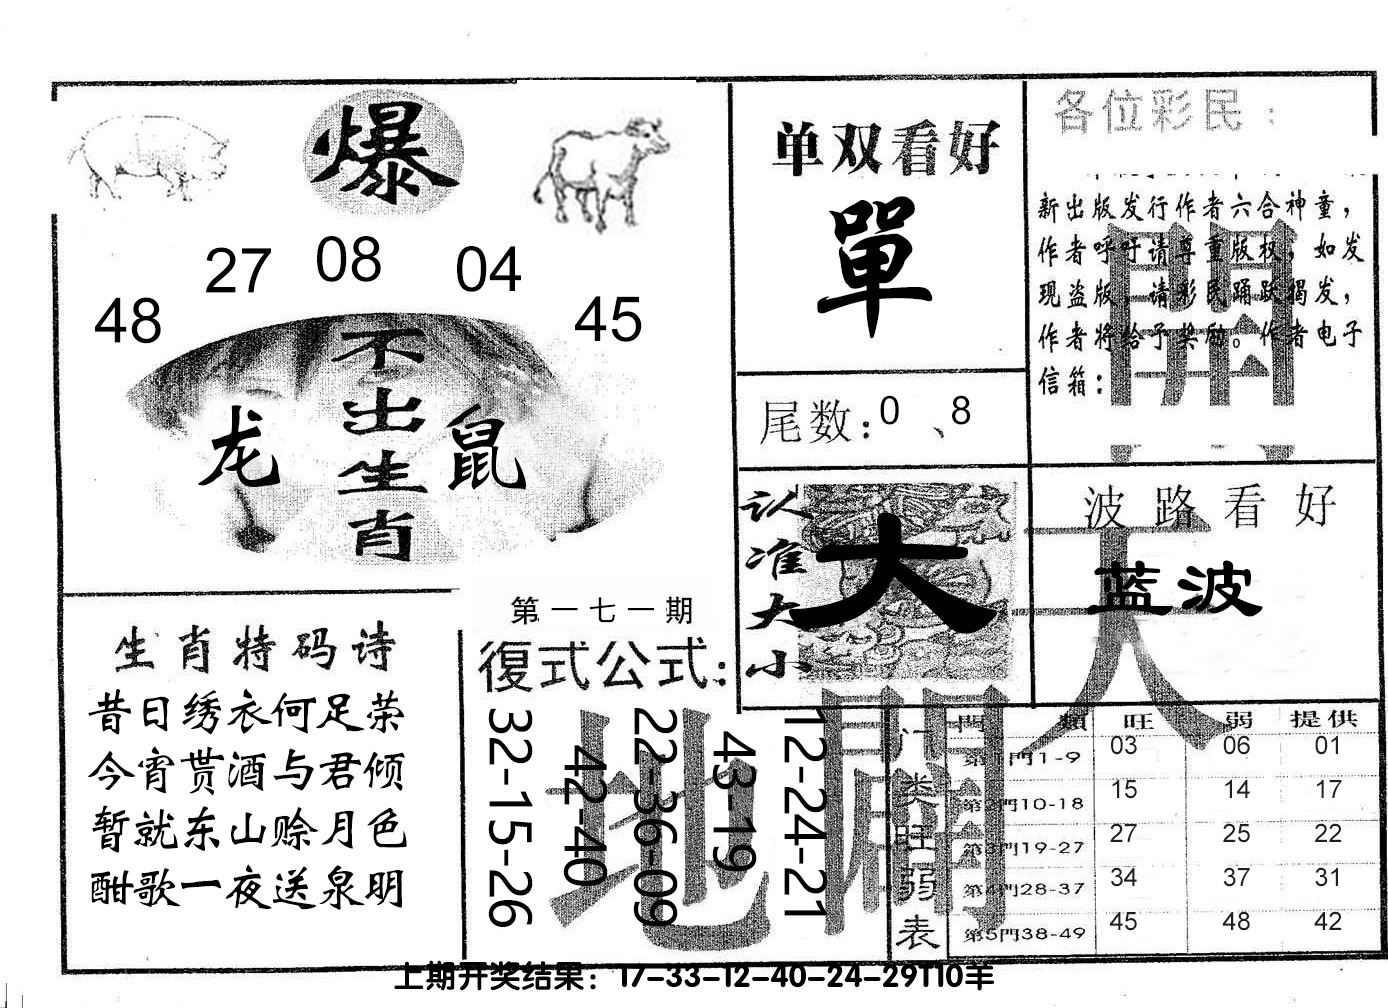 爆
48 27 08 04 45
不出生肖
龙 鼠
单双看好
單
尾数:0 、8
各位彩民:
新出版发行作者六合神童,
作者呼吁请尊重版权,如发
现盗版,请彩民踊跃揭发,
作者将给予奖励。作者电子
信箱:
認准大小
大
波路看好
蓝波
生肖特码诗
昔日绣衣何足荣
今宵贳酒与君倾
暂就东山赊月色
酣歌一夜送泉明
第一七一期
復式公式:
32-15-26
42-40
22-36-09
43-19
12-24-21
天
地
開
闢
门类旺弱表
門類 旺 弱 提供
第1門1-9 03 06 01
第2門10-18 15 14 17
第3門19-27 27 25 22
第4門28-37 34 37 31
第5門38-49 45 48 42
上期开奖结果:17-33-12-40-24-29T10羊